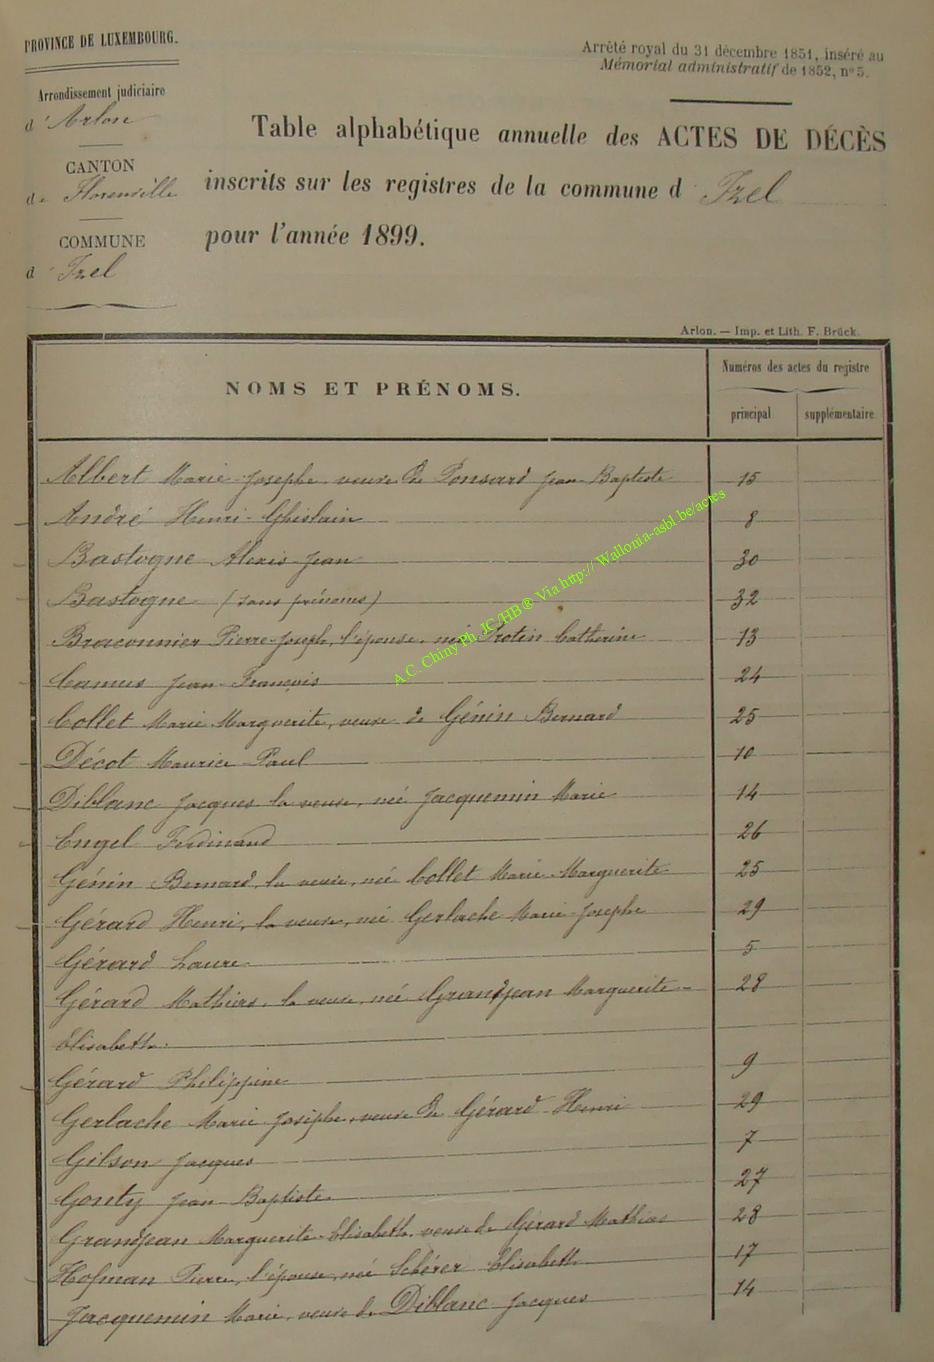 PROVINCE DE LUXEMBOURG.
Arrêté royal du 31 décembre 1851, inséré au
Mémorial administratif de 1852, n° 5.
Arrondissement judiciaire
d'Arlon
CANTON
de Florenville
COMMUNE
d'Izel
Table alphabétique annuelle des ACTES DE DÉCÈS
inscrits sur les registres de la commune d'Izel
pour l'année 1899.
Arlon. — Imp. et Lith. F. Brück.
NOMS ET PRÉNOMS.
Numéros des actes du registre
principal supplémentaire
Albert Marie-Josephe, veuve de Ponsard Jean-Baptiste 15
André Henri-Ghislain 8
Bastogne Alexis-Jean 30
Bastogne (sans prénoms) 32
Braconnier Pierre-Joseph, l'épouse, née Protin Catherine 13
Camus Jean-François 24
Collet Marie-Marguerite, veuve de Génin Bernard 25
Décot Maurice Paul 10
Diblanc Jacques la veuve, née Jacquemin Marie 14
Engel Ferdinand 26
Génin Bernard, la veuve, née Collet Marie-Marguerite 25
Gérard Henri, la veuve, née Gerlache Marie-Josephe 29
Gérard Laure 5
Gérard Mathias, la veuve, née Grandjean Marguerite- 28
Elisabeth.
Gérard Philippine 9
Gerlache Marie Josephe, veuve de Gérard Henri 29
Gilson Jacques 7
Gouty Jean-Baptiste 27
Grandjean Marguerite-Elisabeth, veuve de Gérard Mathias 28
Hofman Pierre, l'épouse, née Schérer Elisabeth 17
Jacquemin Marie, veuve de Diblanc Jacques 14
A.C. Chiny Ph. JC /HB ® Via http:// Wallonia-asbl.be/actes